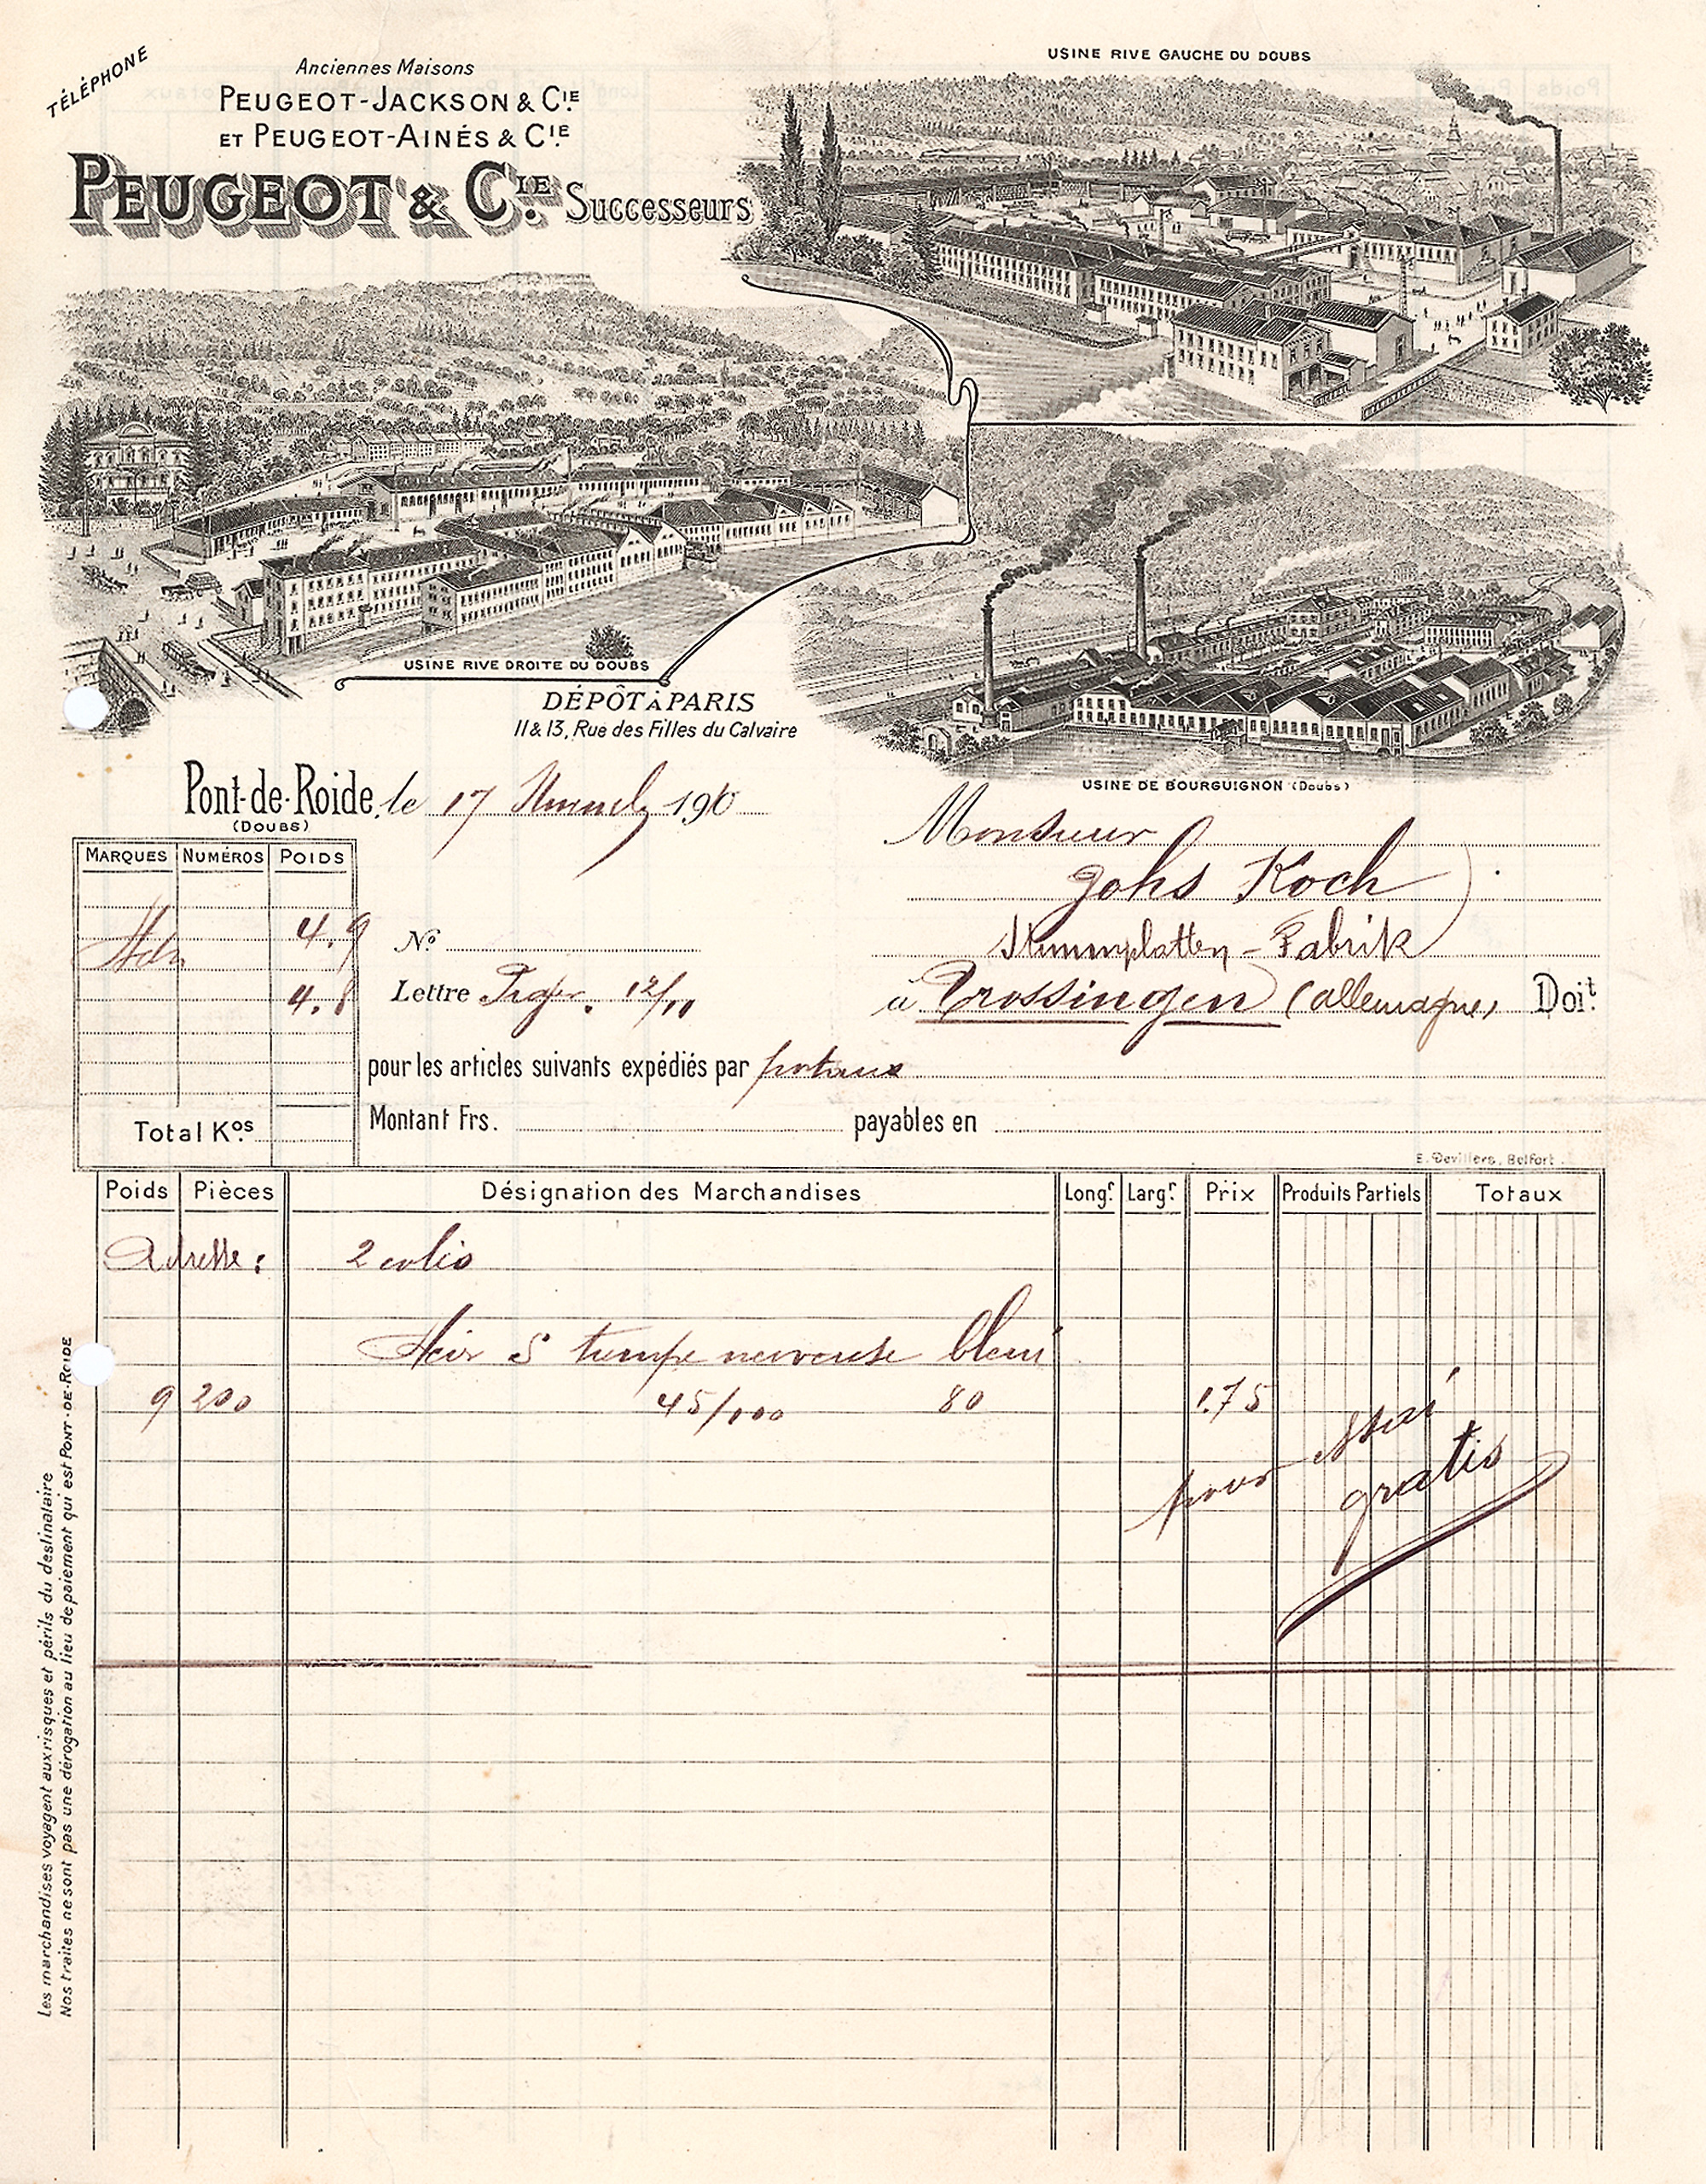 TÉLÉPHONE
Anciennes Maisons
PEUGEOT-JACKSON & CIE
ET PEUGEOT-AINÉS & CIE
PEUGEOT & CIE Successeurs
USINE RIVE GAUCHE DU DOUBS
USINE RIVE DROITE DU DOUBS
DÉPÔT À PARIS
11 & 13, Rue des Filles du Calvaire
USINE DE BOURGUIGNON (Doubs)
Pont-de-Roide, le 17 190
(DOUBS)
Monsieur
Johs Koch
Stimmplatten-Fabrik
à Trossingen (allemagne) Doit
MARQUES NUMÉROS POIDS
4.9
4.8
Total Kos
No
Lettre 12/11
pour les articles suivants expédiés par postaux
Montant Frs. payables en
E. Devillers, Belfort.
Poids Pièces Désignation des Marchandises Longr Largr Prix Produits Partiels Totaux
Adresse: 2 colis
Acier S trempe nerveuse bleui
9 200 45/100 80 1.75
pour essai
gratis
Les marchandises voyagent aux risques et périls du destinataire
Nos traites ne sont pas une dérogation au lieu de paiement qui est PONT-DE-ROIDE